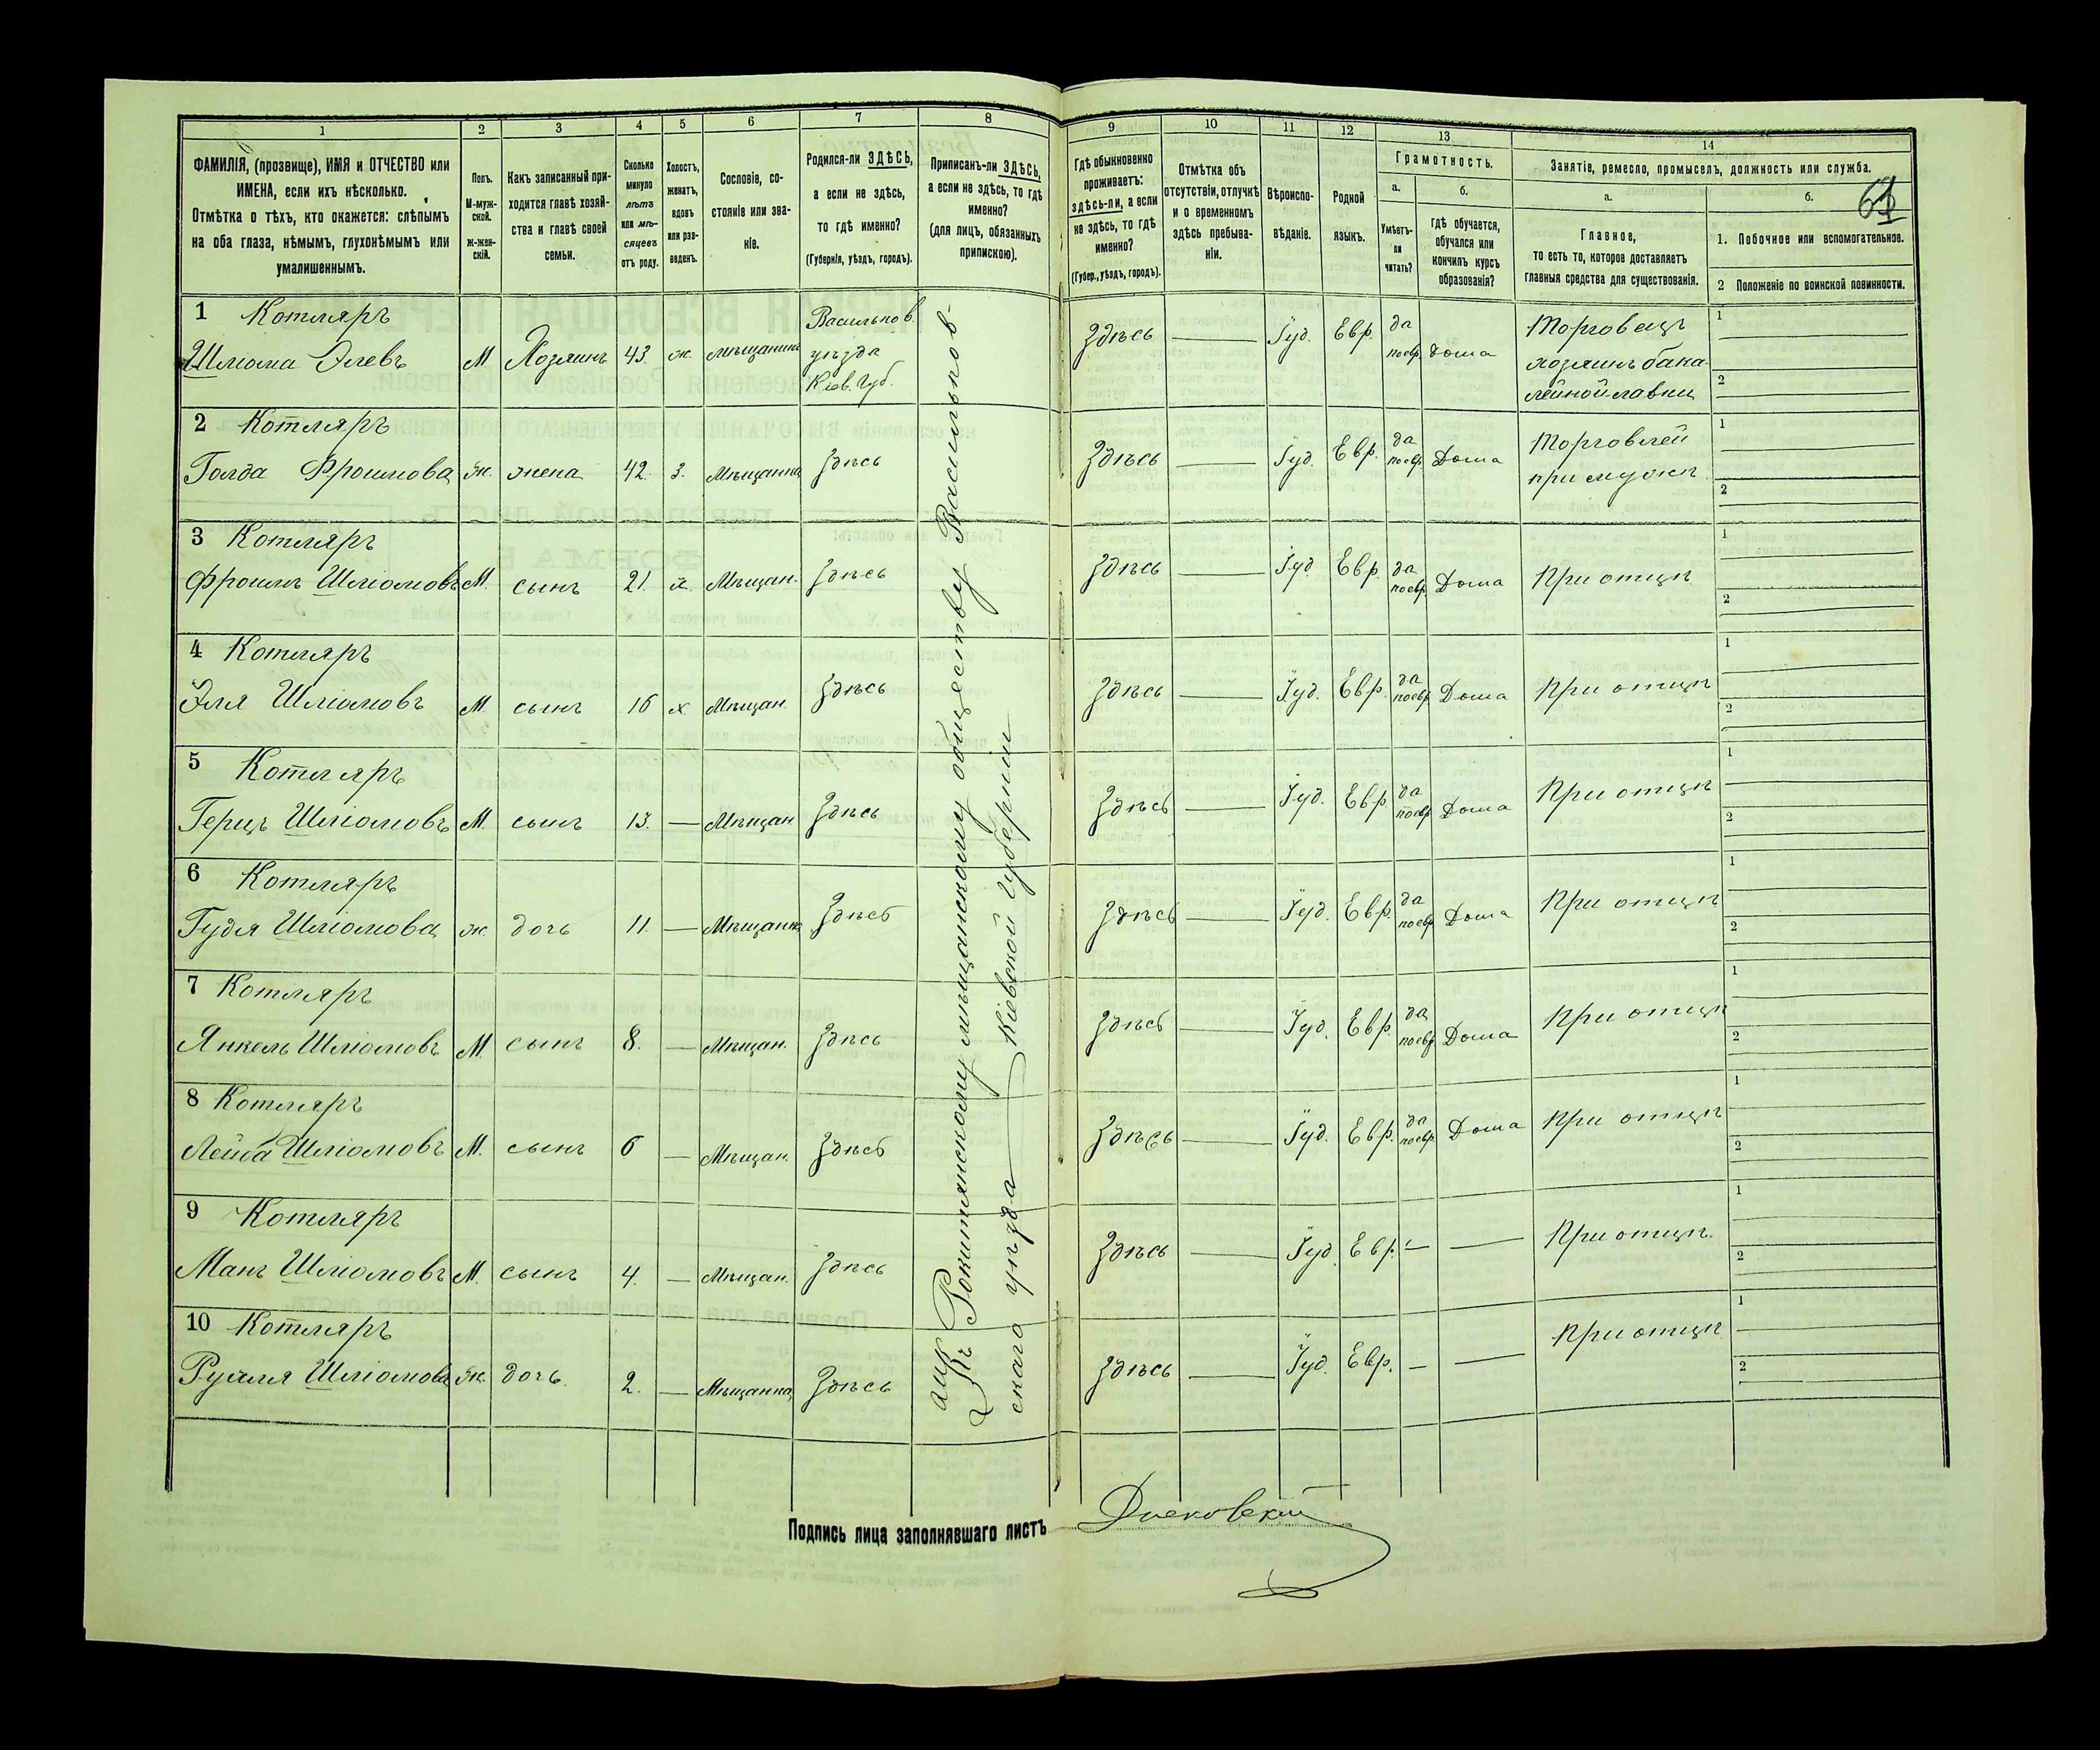 1
2
3
4
5
6
7
8
9
10
11
12
13
14
ФАМИЛІЯ, (прозвище), ИМЯ и ОТЧЕСТВО или
ИМЕНА, если ихъ нѣсколько.
Отмѣтка о тѣхъ, кто окажется: слѣпымъ
на оба глаза, нѣмымъ, глухонѣмымъ или
умалишеннымъ.
Полъ.
М-муж-
ской.
Ж-жен-
скій.
Какъ записанный при-
ходится главѣ хозяй-
ства и главѣ своей
семьи.
Сколько
минуло
лѣтъ
или мѣ-
сяцевъ
отъ роду.
Холостъ,
женатъ,
вдовъ
или раз-
веденъ.
Сословіе, со-
стояніе или зва-
ніе.
Родился-ли ЗДѢСЬ,
а если не здѣсь,
то гдѣ именно?
(Губернія, уѣздъ, городъ).
Приписанъ-ли ЗДѢСЬ,
а если не здѣсь, то гдѣ
именно?
(для лицъ, обязанныхъ
припискою).
Гдѣ обыкновенно
проживаетъ:
здѣсь-ли, а если
не здѣсь, то гдѣ
именно?
(Губер., уѣздъ, городъ).
Отмѣтка объ
отсутствіи, отлучкѣ
и о временномъ
здѣсь пребыва-
ніи.
Вѣроиспо-
вѣданіе.
Родной
языкъ.
Грамотность.
а.
Умѣетъ-
ли
читать?
б.
Гдѣ обучается,
обучался или
кончилъ курсъ
образованія?
Занятіе, ремесло, промыселъ, должность или служба.
а.
Главное,
то есть то, которое доставляетъ
главныя средства для существованія.
б.
1. Побочное или вспомогательное.
2 Положеніе по воинской повинности.
1 Котляръ
Шліома Элевъ М. Хозяинъ 43. ж. мѣщанинъ
Васильков.
уѣзда
Кіев. Губ.
Здѣсь Іуд. Евр. да поевр. Дома
Торговецъ
хозяинъ бака-
лейной лавки
1
2
2 Котляръ
Голда Фроимова ж. жена 42. з. Мѣщанка Здѣсь
Здѣсь Іуд. Евр. да поевр. Дома
Торговлей
при мужѣ
1
2
3 Котляръ
Фроимъ Шліомовъ М. сынъ 21. х. Мѣщан. Здѣсь
Здѣсь Іуд. Евр. да поевр. Дома При отцѣ
1
2
4 Котляръ
Эля Шліомовъ М. сынъ 16 х Мѣщан. Здѣсь
Здѣсь Іуд. Евр. да поевр. Дома При отцѣ
1
2
5 Котляръ
Герцъ Шліомовъ М. сынъ 13. — Мѣщан Здѣсь
Здѣсь Іуд. Евр. да поевр. Дома При отцѣ
1
2
6 Котляръ
Гудля Шліомова ж. дочь 11. — Мѣщанка Здѣсь
Здѣсь Іуд. Евр. да поевр. Дома При отцѣ
1
2
7 Котляръ
Янкель Шліомовъ М. сынъ 8. — Мѣщан. Здѣсь
Здѣсь Іуд. Евр. да поевр. Дома При отцѣ
1
2
8 Котляръ
Лейба Шліомовъ М. сынъ 6 — Мѣщан. Здѣсь
Здѣсь Іуд. Евр. да поевр. Дома При отцѣ
1
2
9 Котляръ
Манъ Шліомовъ М. сынъ 4. — Мѣщан. Здѣсь
Здѣсь Іуд. Евр. — — При отцѣ.
1
2
10 Котляръ
Шліомова ж. дочь. 2. — Мѣщанка Здѣсь
Здѣсь Іуд. Евр. — — При отцѣ
1
2
Къ Рокитянскому мѣщанскому обществу Васильков-
скаго уѣзда Кіевской губерніи
Подпись лица заполнявшаго листъ